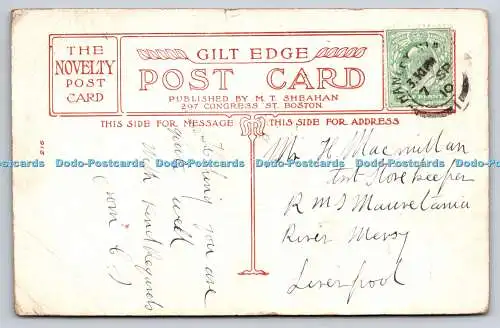 THE
NOVELTY
POST
CARD
GILT EDGE
POST CARD
PUBLISHED BY M. T. SHEAHAN
297 CONGRESS ST. BOSTON.
THIS SIDE FOR MESSAGE
THIS SIDE FOR ADDRESS
216
Hoping you are
quite well
With kind Regards
from
Mr H. Macmillan
Asst Storekeeper
R M S Mauretania
River Mersy
Liverpool
3.30 PM
7 SP
10
Dodo-Postcards Dodo-Postcards Dodo-Postcards Dodo-Postcards Dodo-Postcards